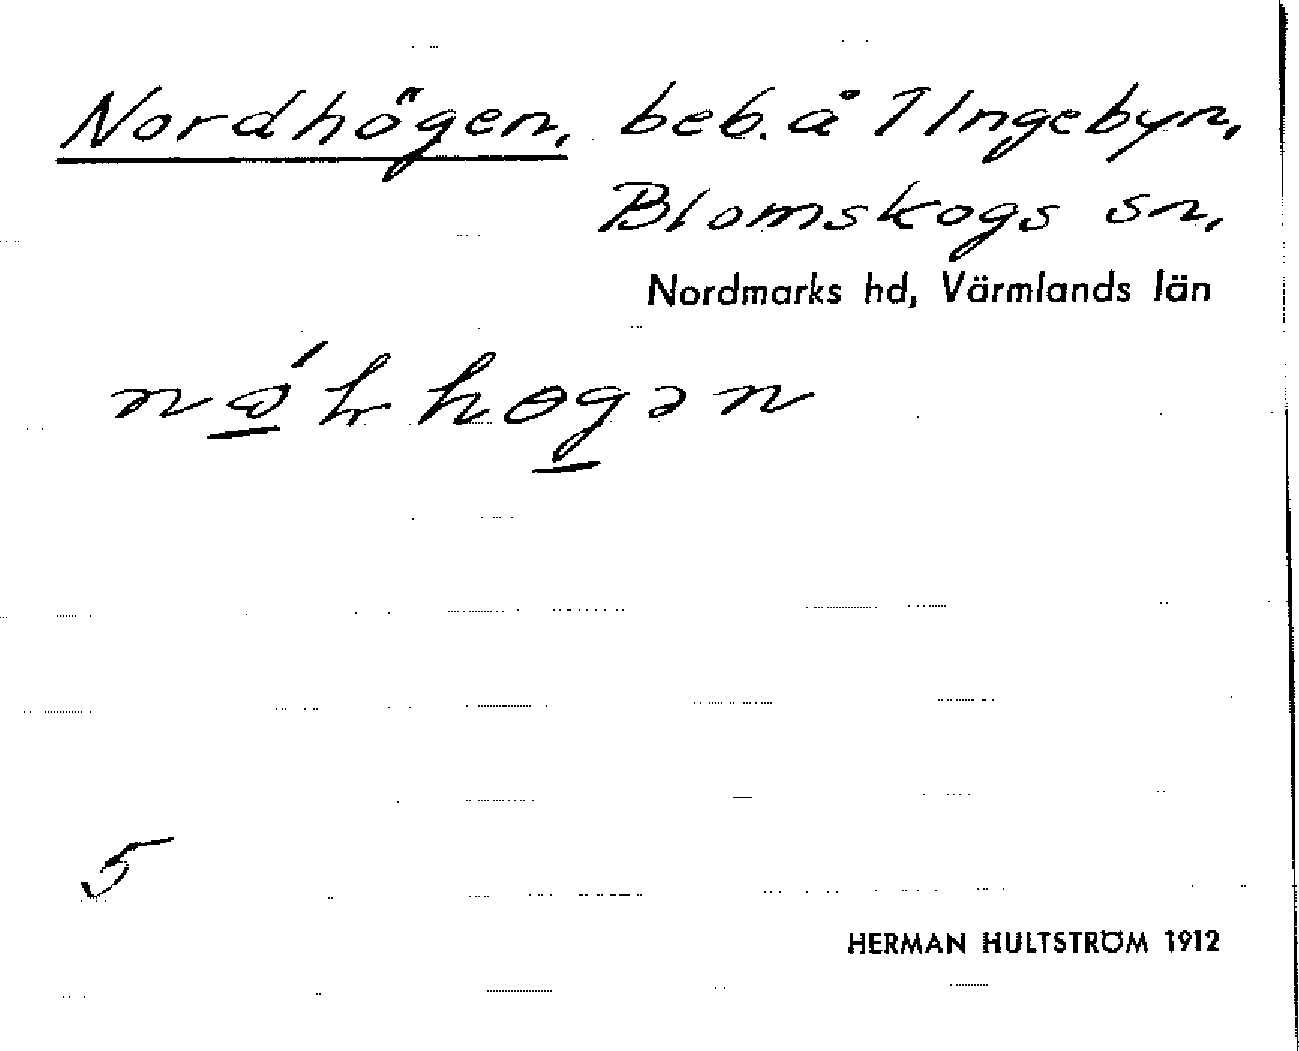 Nordhögen, beb. å 1 Ingebyn,
Blomskogs sn,
Nordmarks hd, Värmlands län
5
HERMAN HULTSTRÖM 1912